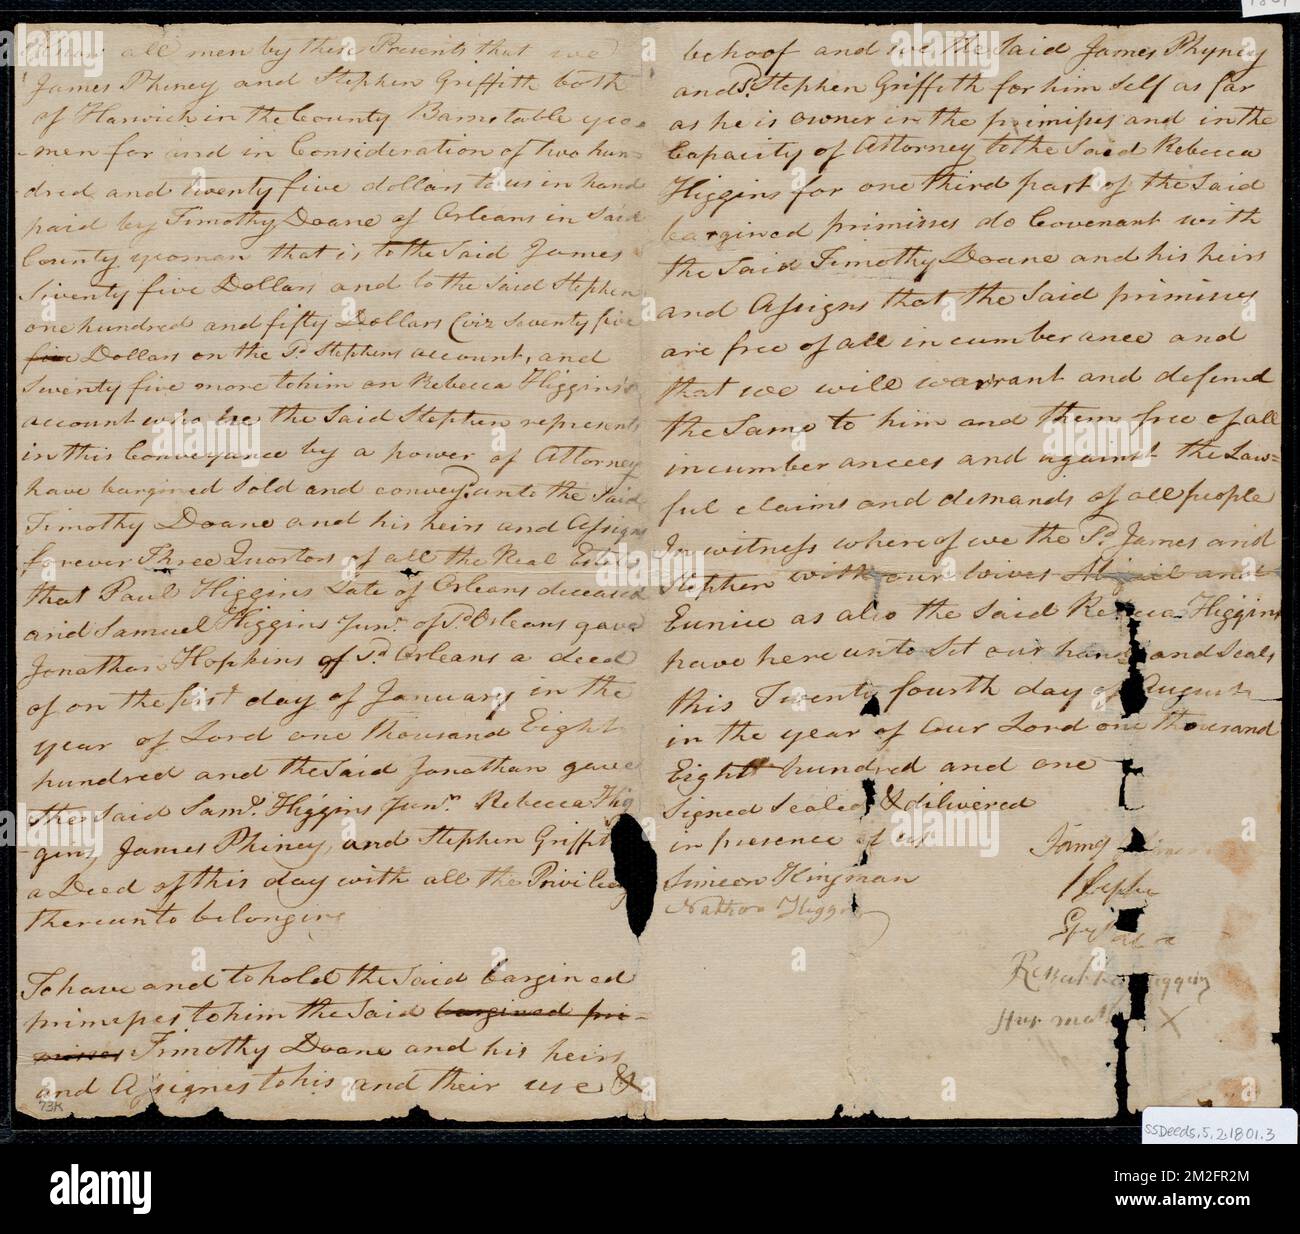 Know all men by these Presents that we
James Phiney and Stephen Griffith both
of Harwich in the County Barnstable yeo-
-men for and in Consideration of two hun-
dred and twenty five dollars to us in hand
paid by Timothy Doane of Orleans in Said
County yeoman that is to the Said James
Seventy five Dollars and to the Said Stephen
one hundred and fifty Dollars (viz Seventy five
five Dollars on the Sd. Stephens account, and
Seventy five more to him on Rebecca Higgins's
account who he the Said Stephen represents
in this Conveyance by a power of Attorney
have bargined Sold and convey'd unto the Said
Timothy Doane and his heirs and Assigns
forever Three Quorters of all the Real Estate
that Paul Higgins Late of Orleans deceased
and Samuel Higgins Junr. of Sd. Orleans gave
Jonathan Hopkins of Sd. Orleans a deed
of on the first day of January in the
year of Lord one thousand Eight
hundred and the Said Jonathan gave
the Said Saml. Higgins Junr. Rebecca Hig
-gins, James Phiney, and Stephen Griffith
a Deed of this day with all the Privileg
thereunto belonging
To have and to hold the Said bargined
primises to him the Said bargined pri-
misses Timothy Doane and his heirs
and Assignes to his and their use &
73K
behoof and we the Said James Phyney
and Sd. Stephen Griffith for him Self as far
as he is owner in the primises and in the
Capacity of Attorney to the Said Rebecca
Higgins for one third part of the Said
bargined primisses do Covenant with
the Said Timothy Doane and his heirs
and Assigns that the Said primisses
are free of all incumberance and
that we will warrant and defend
the Same to him and them free of all
incumberancees and against the Law=
ful claims and demands of all people
In witness whereof we the Sd. James and
Stephen with our wives Abigail and
Eunice as also the Said Rebecca Higgins
have hereunto Set our hands and Seals
this Twenty fourth day of August
in the year of Our Lord one thousand
Eight hundred and one
Signed Sealed & delivered
in presence of us
Simeon Kingman
Nathan Higgins
James
Stephe
Rebekka Higgins
Hur mark X
SSDeeds.5.2.1801.3
alamy
Image ID: 2M2FR2M
www.alamy.com